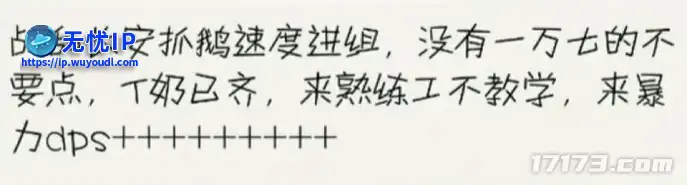 战 安抓鹅速度进组，没有一万七的不
无忧IP
https://ip.wuyoudl.com
要点，T奶已齐，来熟练工不教学，来暴
力dps+++++++++
17173.com